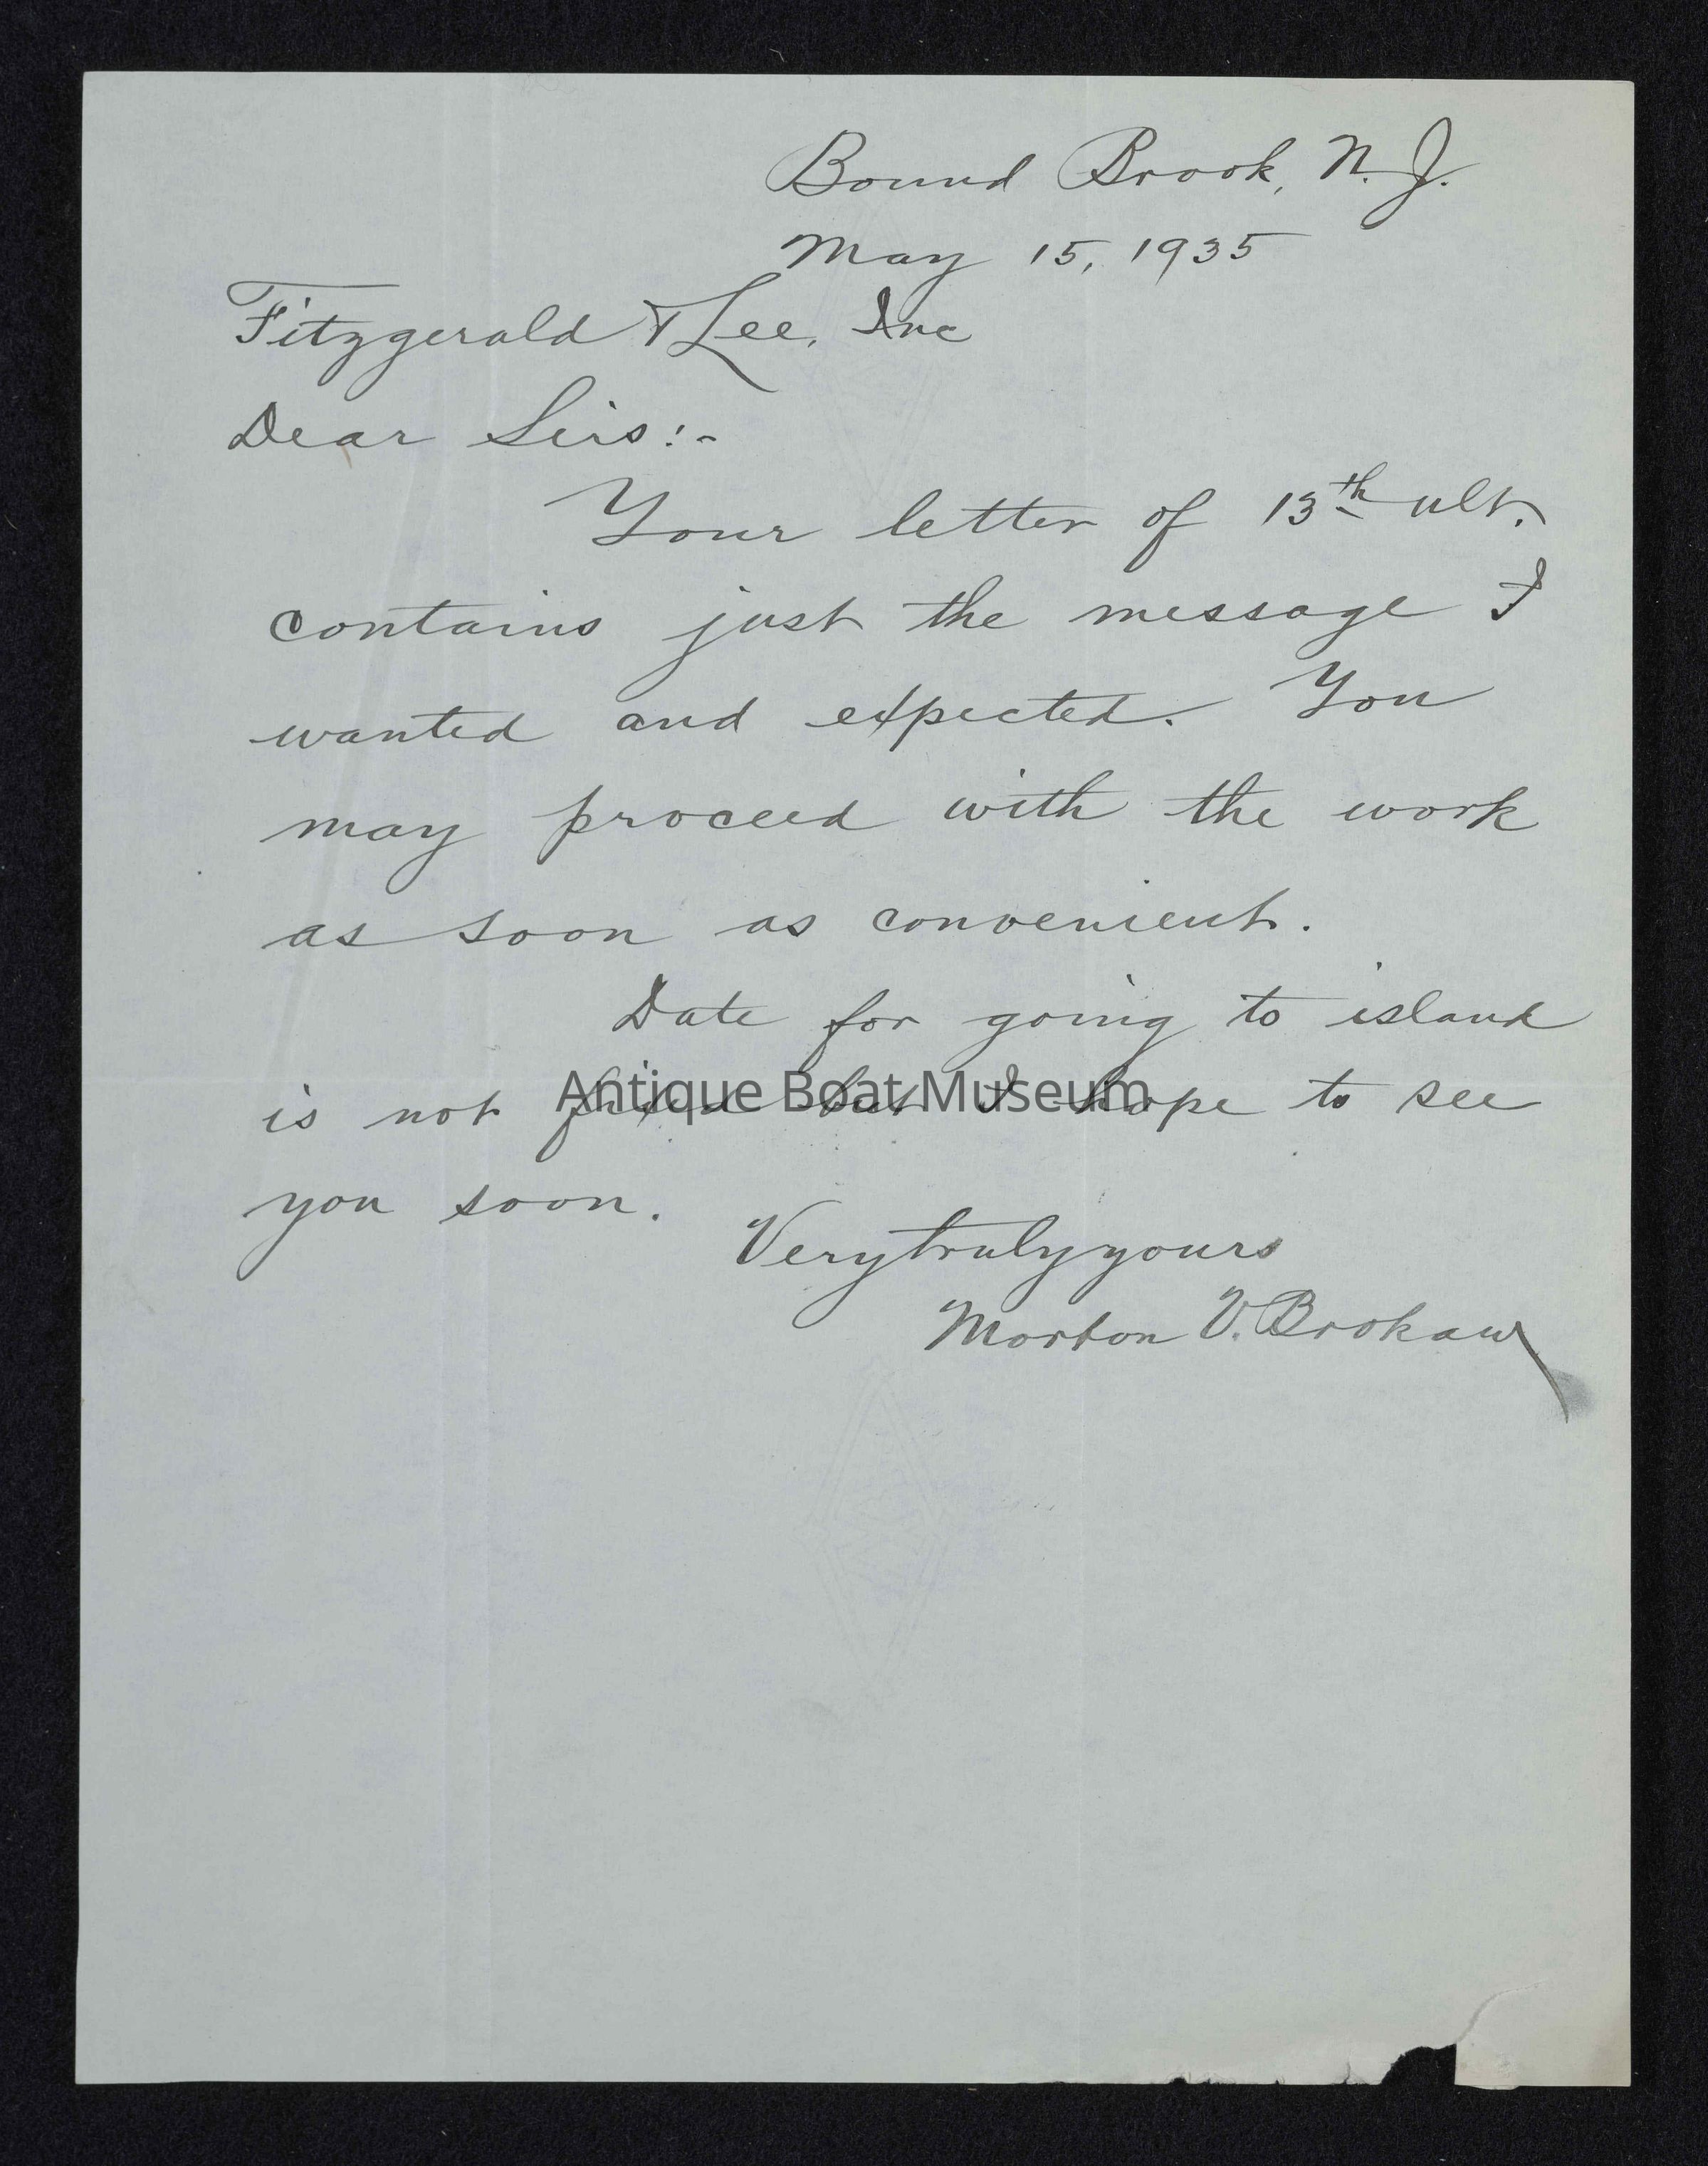 Bound Brook, N. J.
May 15, 1935
Fitzgerald & Lee, Inc
Dear Sirs:-
Your letter of 13th ult.
contains just the message I
wanted and expected. You
may proceed with the work
as soon as convenient.
Date for going to island
is not fixed but I hope to see
Antique Boat Museum
you soon.
Very truly yours
Morton V. Brokaw